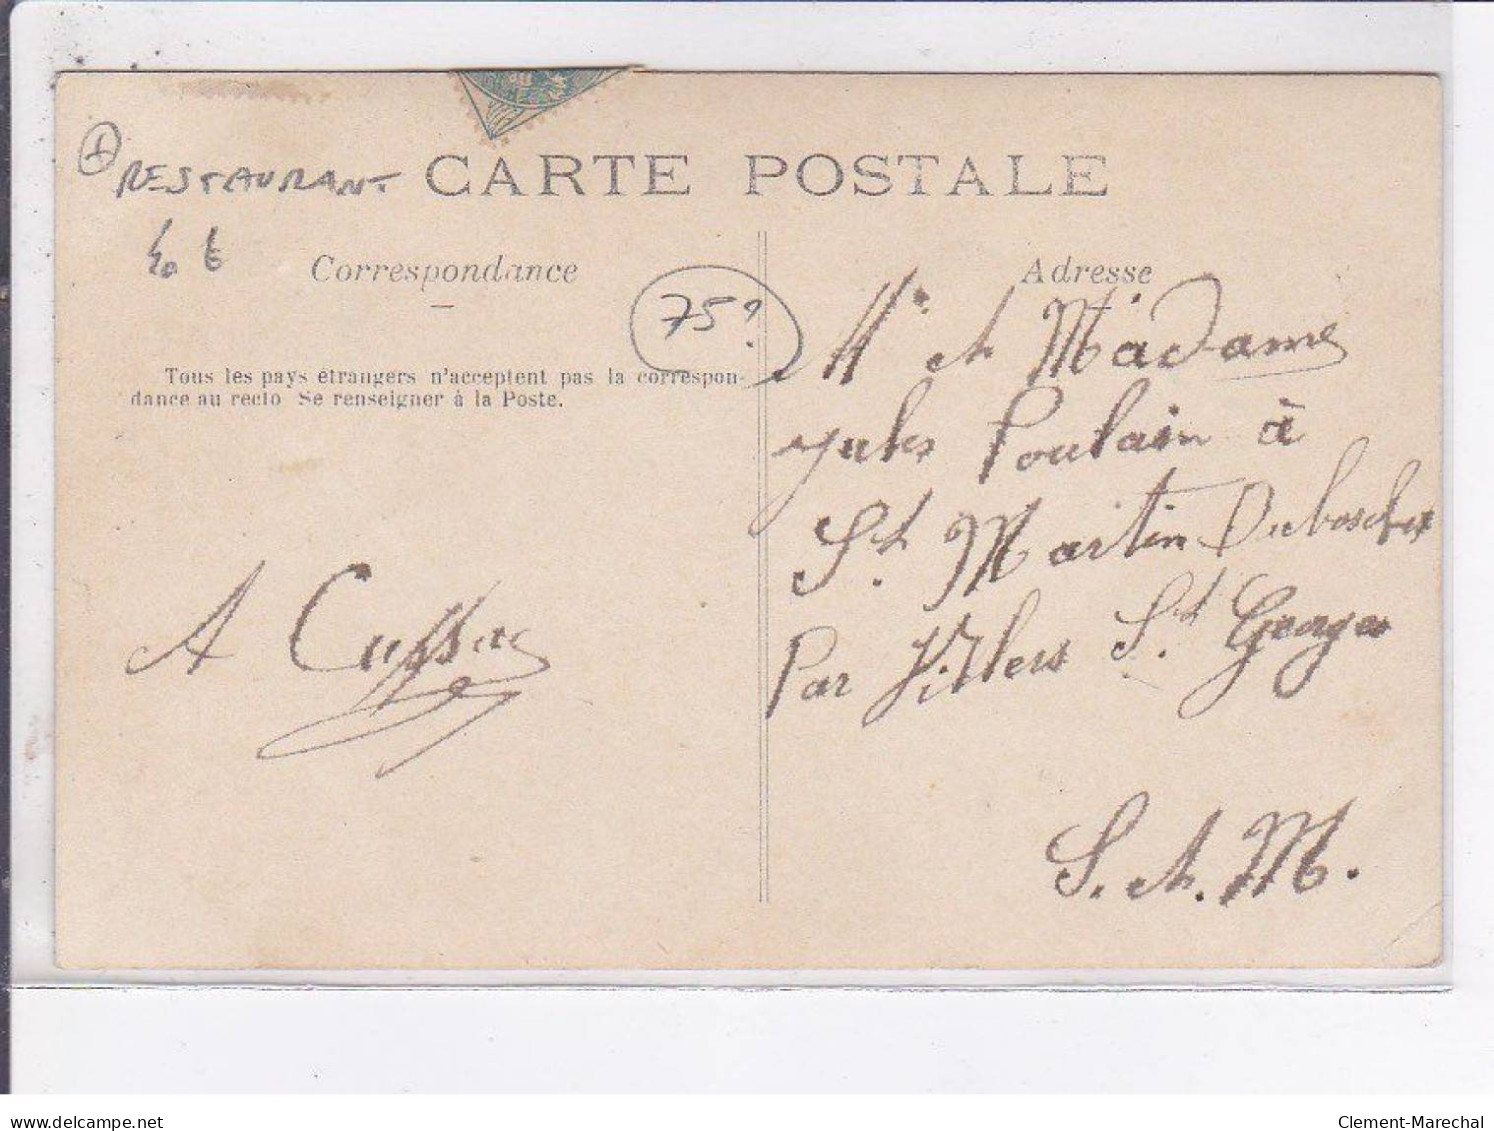 RESTAURANT
CARTE POSTALE
Correspondance
Adresse
75?
Tous les pays étrangers n'acceptent pas la correspon-
dance au recto Se renseigner à la Poste.
Mr et Madame
Jules Poulain à
St. Martin Duboschet
Par Villers St. Georges
S. et. M.
A Cussac
delcampe.net
Clement-Marechal